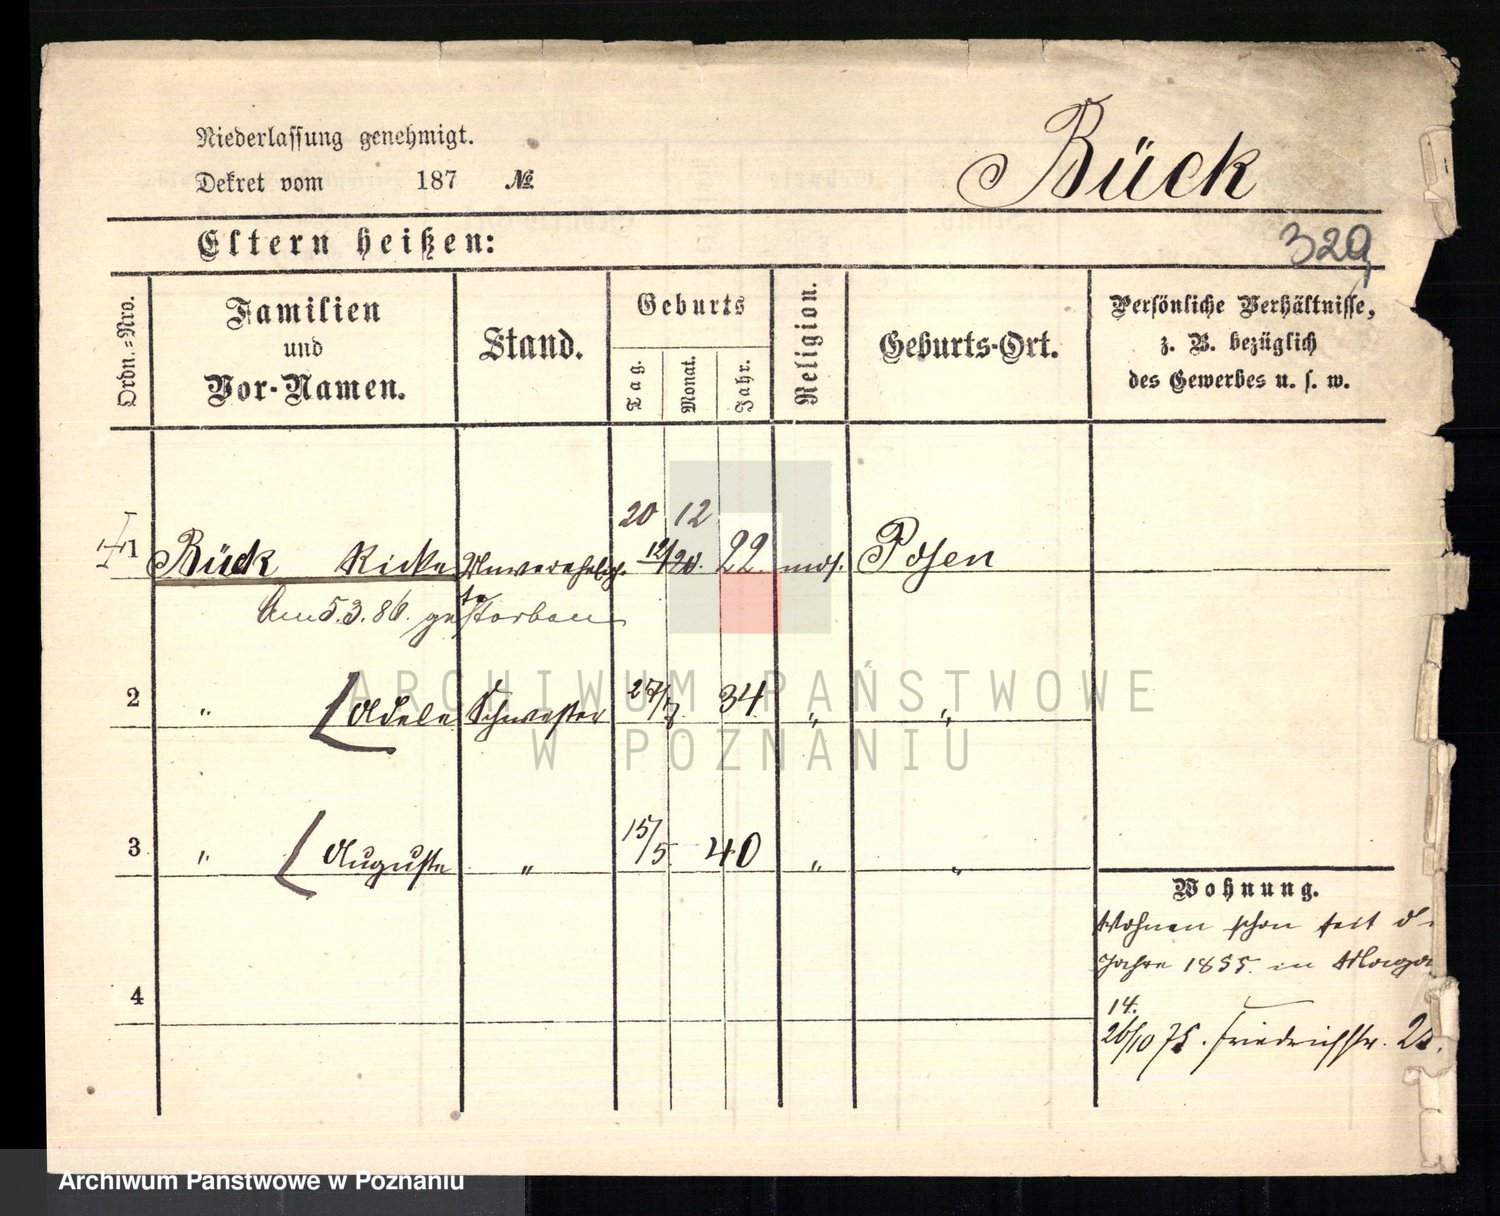 Niederlassung genehmigt.
Dekret vom 187 №
Bück
Eltern heißen:
329
Ordn.=Nro.
Familien
und
Vor-Namen.
Stand.
Geburts
Tag.
Monat.
Jahr.
Religion.
Geburts-Ort.
Persönliche Verhältnisse,
z. B. bezüglich
des Gewerbes u. s. w.
20 12
1 Bück Ricke Unverehelich 12/20. 22. mos. Posen
te
Am 5.3.86. gestorben
2 " Adele Schwester 27/7 34 " "
3 " Auguste " 15/5 40 " "
Wohnung.
Wohnen schon seit d.
Jahre 1855. in
14.
4
26/10 78. Friedrichstr. 20.
ARCHIWUM PAŃSTWOWE
W POZNANIU
Archiwum Państwowe w Poznaniu